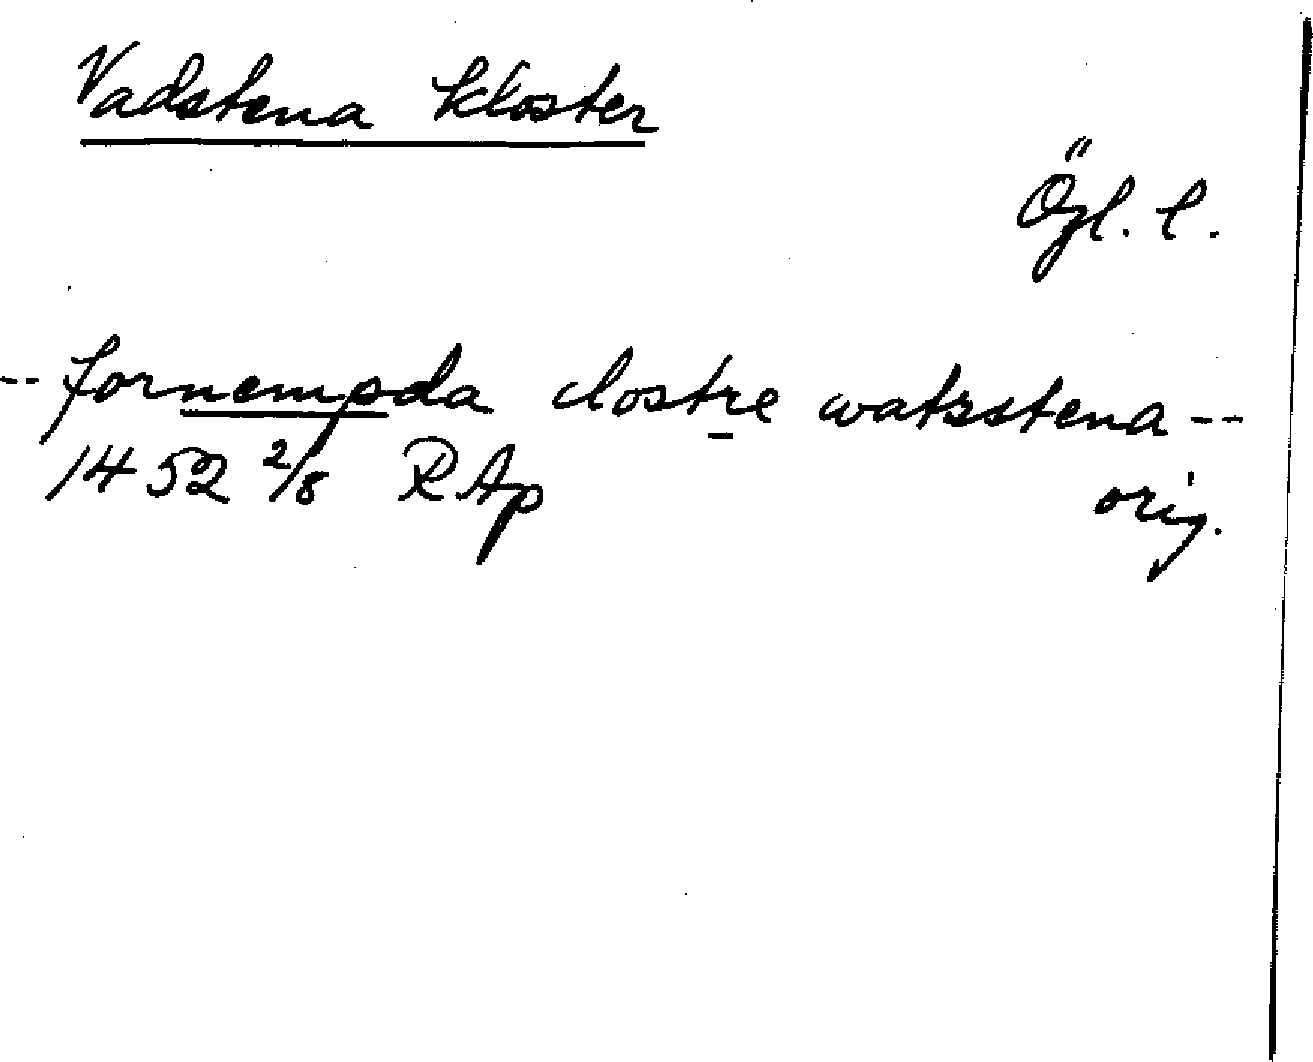 Vadstena kloster
Ögl. l.
-- fornempda clostre watzstena --
1452 2/8 RAp orig.